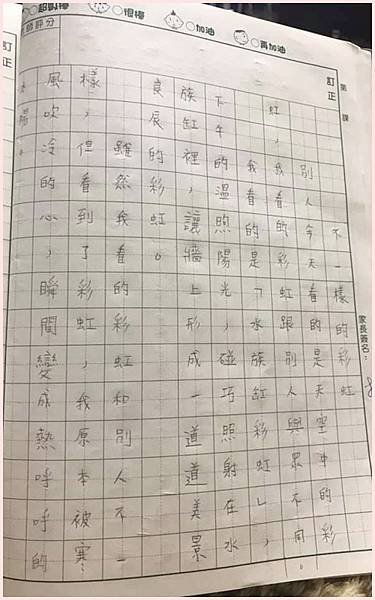 ○超級棒 ○很棒 ○加油 ○再加油
師評分
訂正
第 課
訂正
家長簽名：
不一樣的彩虹
別人今天看的是天空中的彩
虹，我看的彩虹跟別人與眾不同。
我看的是「水族缸彩虹」，
下午溫煦的陽光，碰巧照射在水
族缸裡，讓牆上形成一道道美景
良辰的彩虹。
雖然我看的彩虹和別人不一
樣，但看到了彩虹，我原本被寒
風吹冷的心，瞬間變成熱呼呼的
太陽。